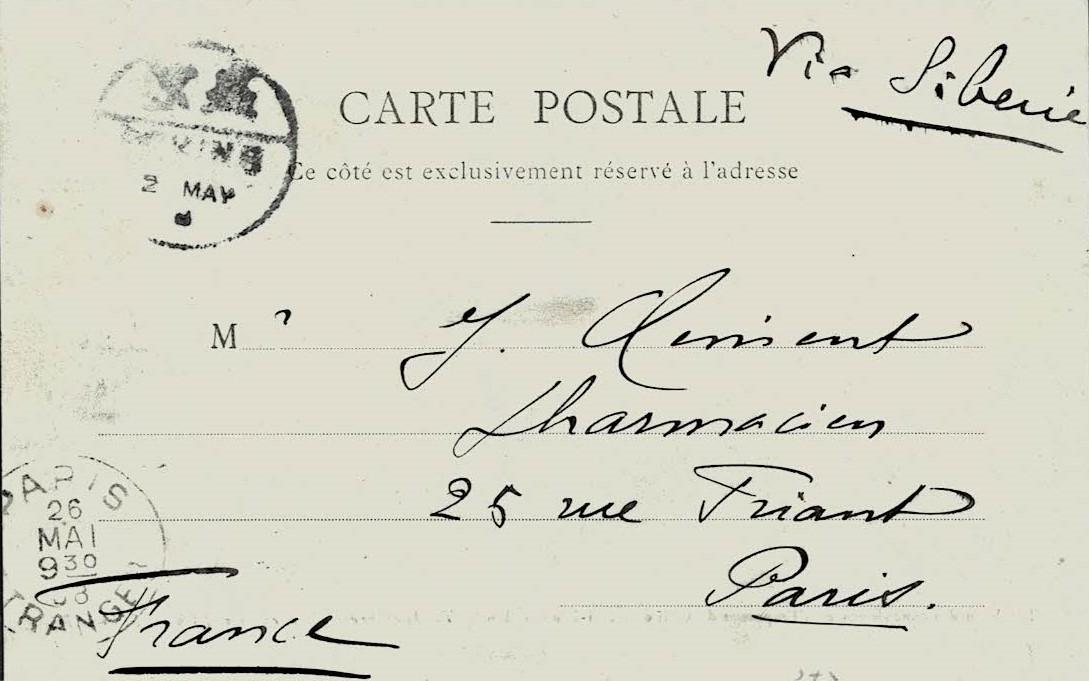 Via Siberie
CARTE POSTALE
Ce côté est exclusivement réservé à l'adresse
2 MAY
M r J. Clement
Pharmacien
25 rue Friant
Paris.
France
PARIS
26
MAI
9 30
08
ETRANGER